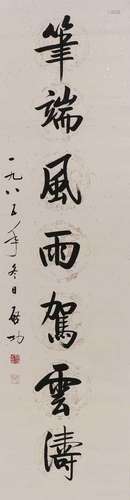 筆端風雨駕雲濤
一九八三年冬日 啟功